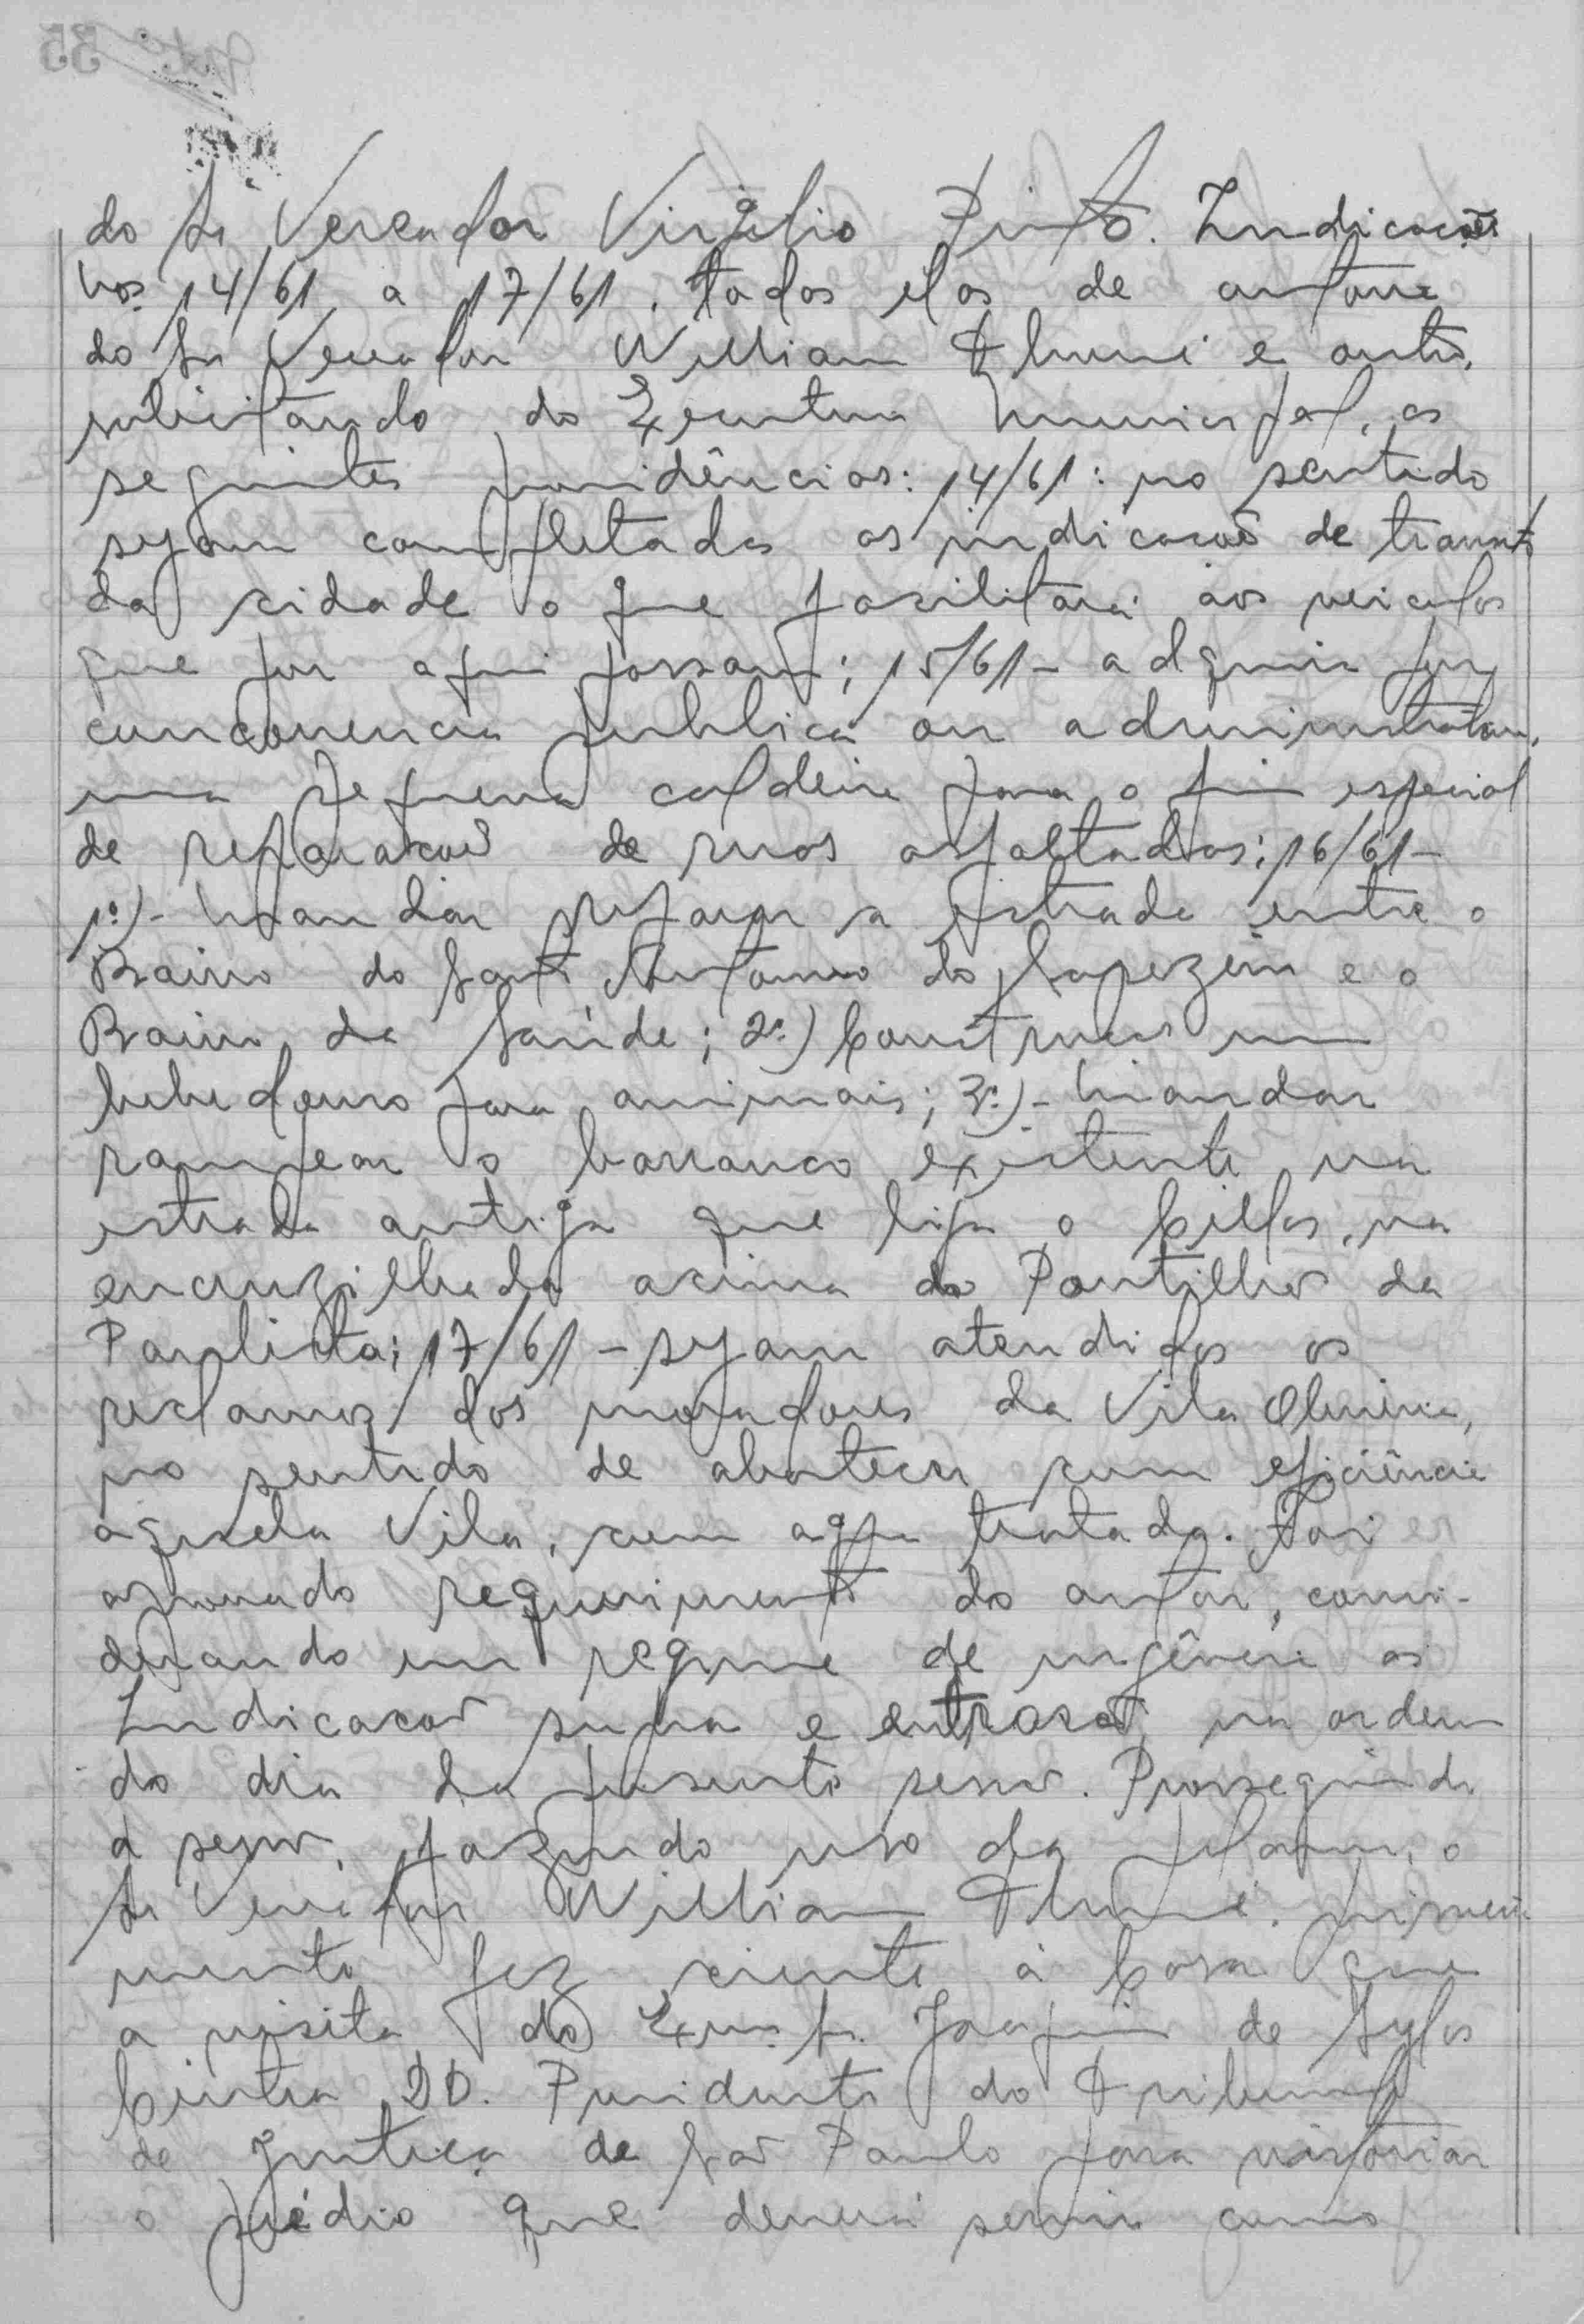 do Sr Vereador Virgilio Pinto. Indicações
Nos. 14/61 a 17/61, todas elas de autoria
do Sr Vereador William e outro,
solicitando do Executivo Municipal, as
seguintes providências: 14/61: no sentido
sejam completadas as indicações de transito
da cidade o que facilitará aos veiculos
que por aqui passam; 15/61 - adquirir por
concorrencia publica ou administrativa,
uma pequena caldeira para o fim especial
de reparacões de ruas asfaltadas; 16/61 -
1º) - Mandar reparar a estrada entre o
Bairro do Santo Antonio do e o
Bairro da Saúde; 2º.) Construir um
bebedouro para animais; 3º.) - Mandar
rampear o barranco existente na
estrada antiga que liga o Cillos, na
encruzilhada acima do Pontilhão da
Paulista; 17/61 - sejam atendidos os
reclamos dos moradores da Vila
no sentido de abastecer com eficiência
aquela Vila, com agua tratada. Foi
aprovado requerimento do autor, consi-
derando em regime de urgência as
Indicacões supra e entrosar na ordem
do dia da presente sessão. Prosseguindo
a sessão, fazendo uso da palavra, o
Sr Vereador William primeira
mente fez ciente à Casa que
a visita do Exmo. Sr. Joaquim de Sylos
Cintra DD. Presidente do Tribunal
de Justiça de São Paulo para vistoriar
o prédio que deverá servir como